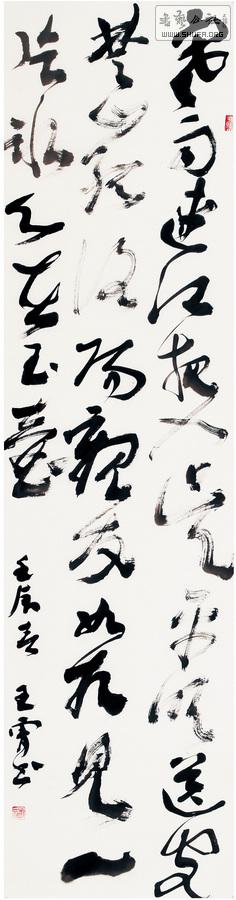 寒雨連江夜入吳平明送客
楚山孤洛陽親友如相見一
片冰心在玉壺
壬辰春 王霄书
WWW.SHUFA.ORG